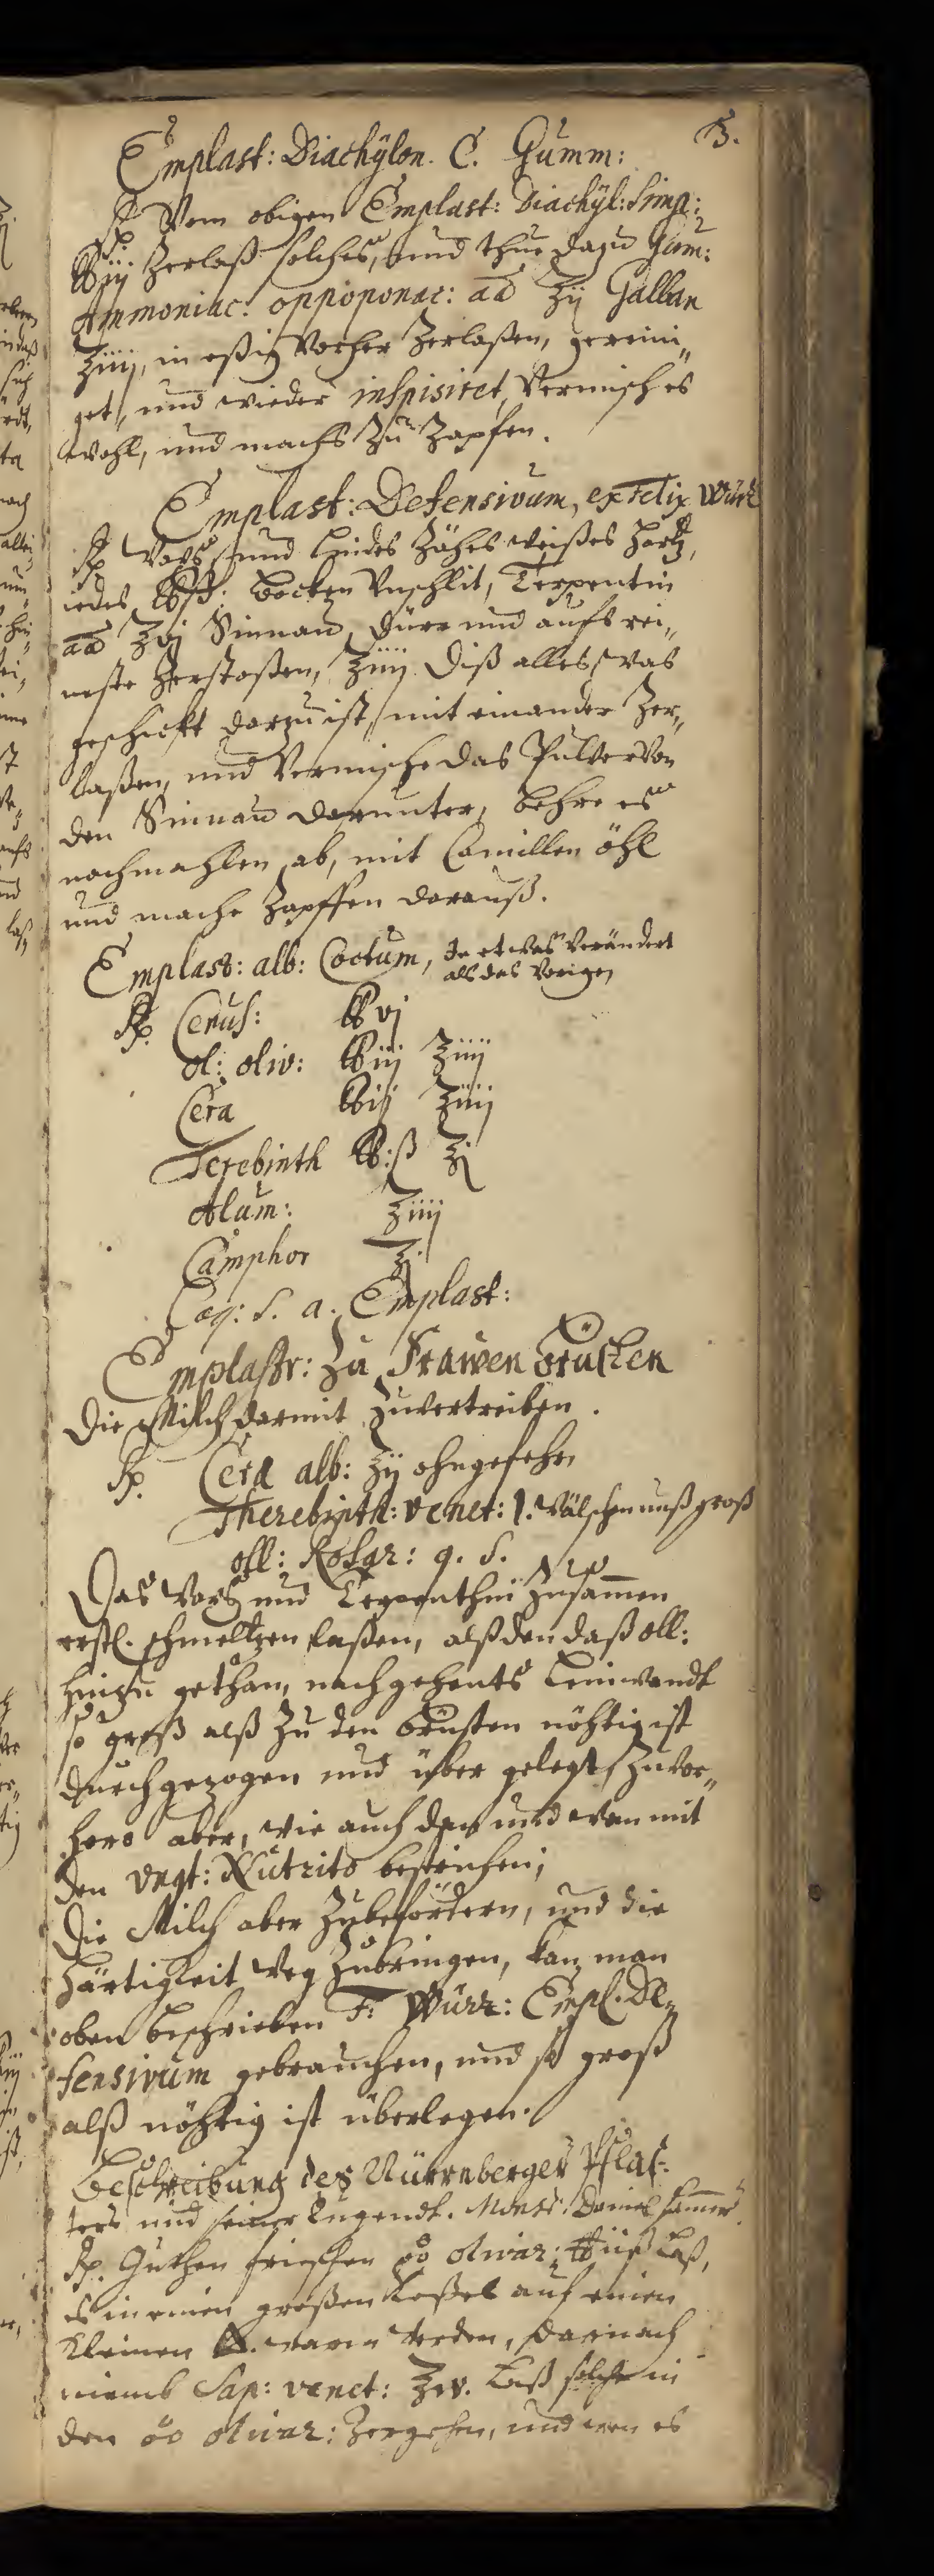 3.
Emplast: Diachÿlon. C. Gumm:
℞ Vom obigen Emplast: Diachÿl: Simp:
℔iij Zerlaß solches, und thue dazu Gum:
Ammoniac: oppoponac: aa ℥ij Galban
℥iiij, in eßig Vorher Zerlaßen, gereini„
get, und wieder inspisiret, Vermisch es
wohl, und machs Zu Zapfen.
Emplast: Defensivum, ex Felix Würtz
℞ Wachs und Lindes Zähes weißes Hartz,
iedes ℔ß. Bocken Unschlit, Terpentin
aa ℥vj Sinnau, dürr und aufs rei„
neste Zerstoßen, ℥iiij Diß alles, was
geschickt darzu ist, mit einander Zer„
laßen, und Vermische das Pulver Von
den Sinnau darunter, behre es
nochmahlen ab, mit Camillen öhl
und mache Zapffen darauß.
Emplast: alb: Coctum, So etwas Verändert
als das Vorigen
℞. Cerus: ℔vj
ol: oliv: ℔iij ℥iiij
Cera ℔iij ℥iiij
Terebinth ℔:ß ℥j
Alum: ℥iiij
Camphor ℥j
Coq: S. a. Emplast:
Emplastr: Zu Frawen brüsten
Die Milch darmit Zuvertreiben.
℞. Cera alb: ℥ij ohngefehr
Therebinth: venet: 1. Wälschen nuß groß
oll: Rosar: q. S.
Das Wachs und Terpenthin Zusammen
erstl. schmeltzen laßen, alß den daß oll:
hinzu gethan, nachgehents Leinwandt
so groß alß Zu den brüsten nöhtig ist
durchgezogen und über gelegt, Zuvor„
hero aber, wie auch dan und wan mit
den Ungt: Nutrito bestrichen;
Die Milch aber Zubefördern, und die
Härtigkeit Weg Zubringen, kan man
oben beschrieben F: Würz: Empl. De„
fensivum gebrauchen, und so groß
alß nöhtig ist überlegen.
Beschreibung des Nürrnberger Pflas„
ters und seiner Tugendt. Monsr: Daniel
℞. Guthen frischen oo olivar: ℔iiß Laß,
es in einen großen Keßel auf einen
Kleinen warm werden, darnach
niemb Sap: venet: ℥iv. Laß solche in
den oo olivar: Zergehen, und wen es